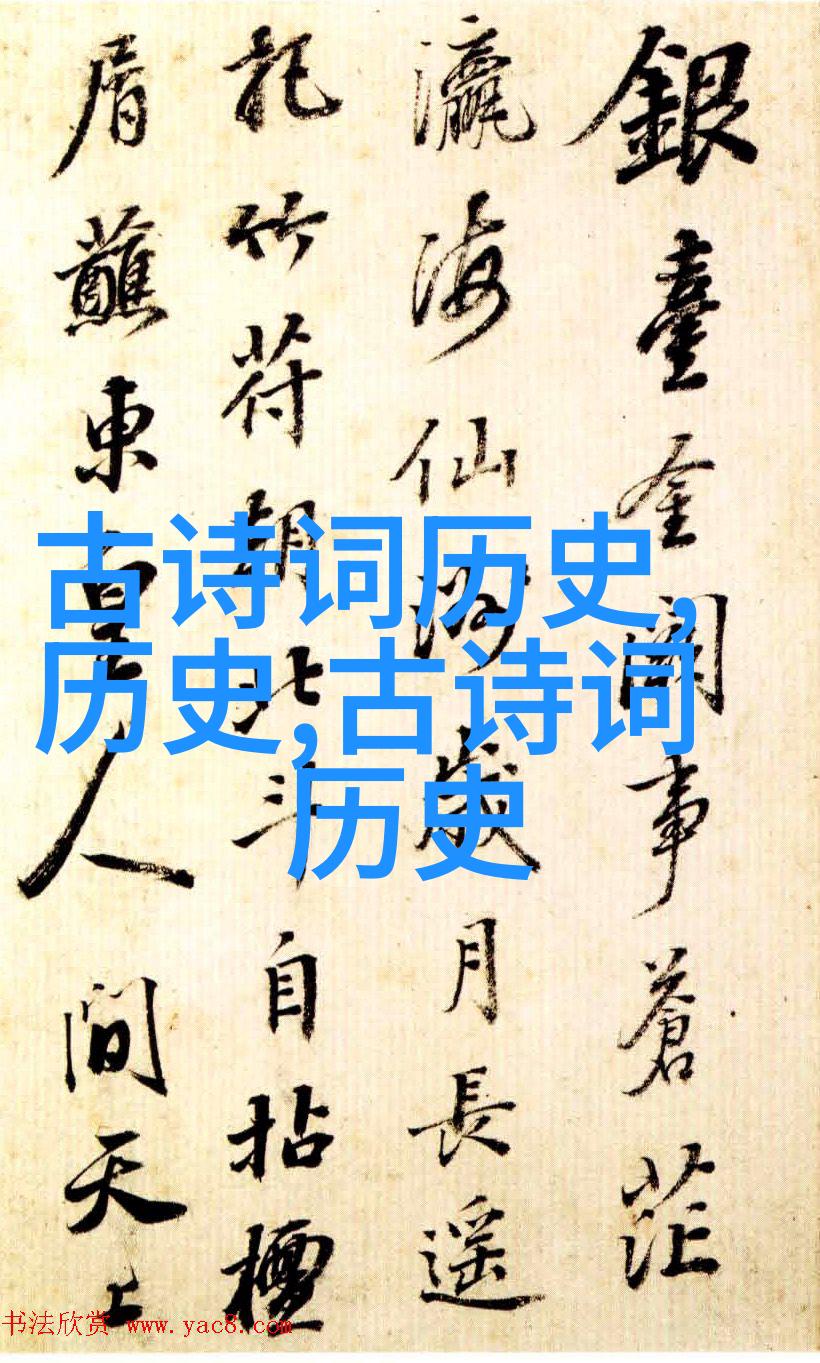 銀臺金闕事蒼茫
瀛海仙游歲月長遥
記竹符朝北斗自拈檀
屑蘸東皇人間天上
古诗词历史,
历史,古诗词
历史
书法欣赏 www.yac8.com